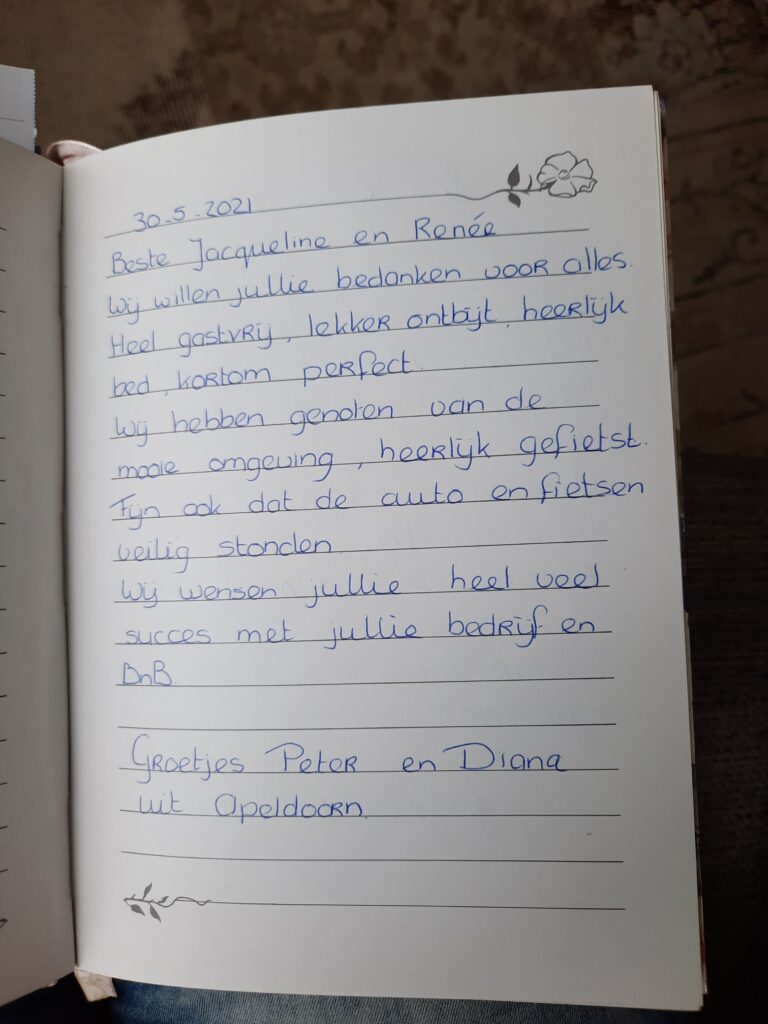 30-5-2021
Beste Jacqueline en Renée
Wij willen jullie bedanken voor alles.
Heel gastvrij, lekker ontbijt, heerlijk
bed, kortom perfect.
Wij hebben genoten van de
mooie omgeving, heerlijk gefietst.
Fijn ook dat de auto en fietsen
veilig stonden.
Wij wensen jullie heel veel
succes met jullie bedrijf en
BnB.
Groetjes Peter en Diana
uit Apeldoorn.